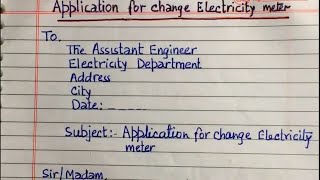 Application for change Electricity meter
To,
The Assistant Engineer
Electricity Department
Address
City
Date: _ _ _ _ _
Subject:- Application for change Electricity
meter
Sir/Madam,